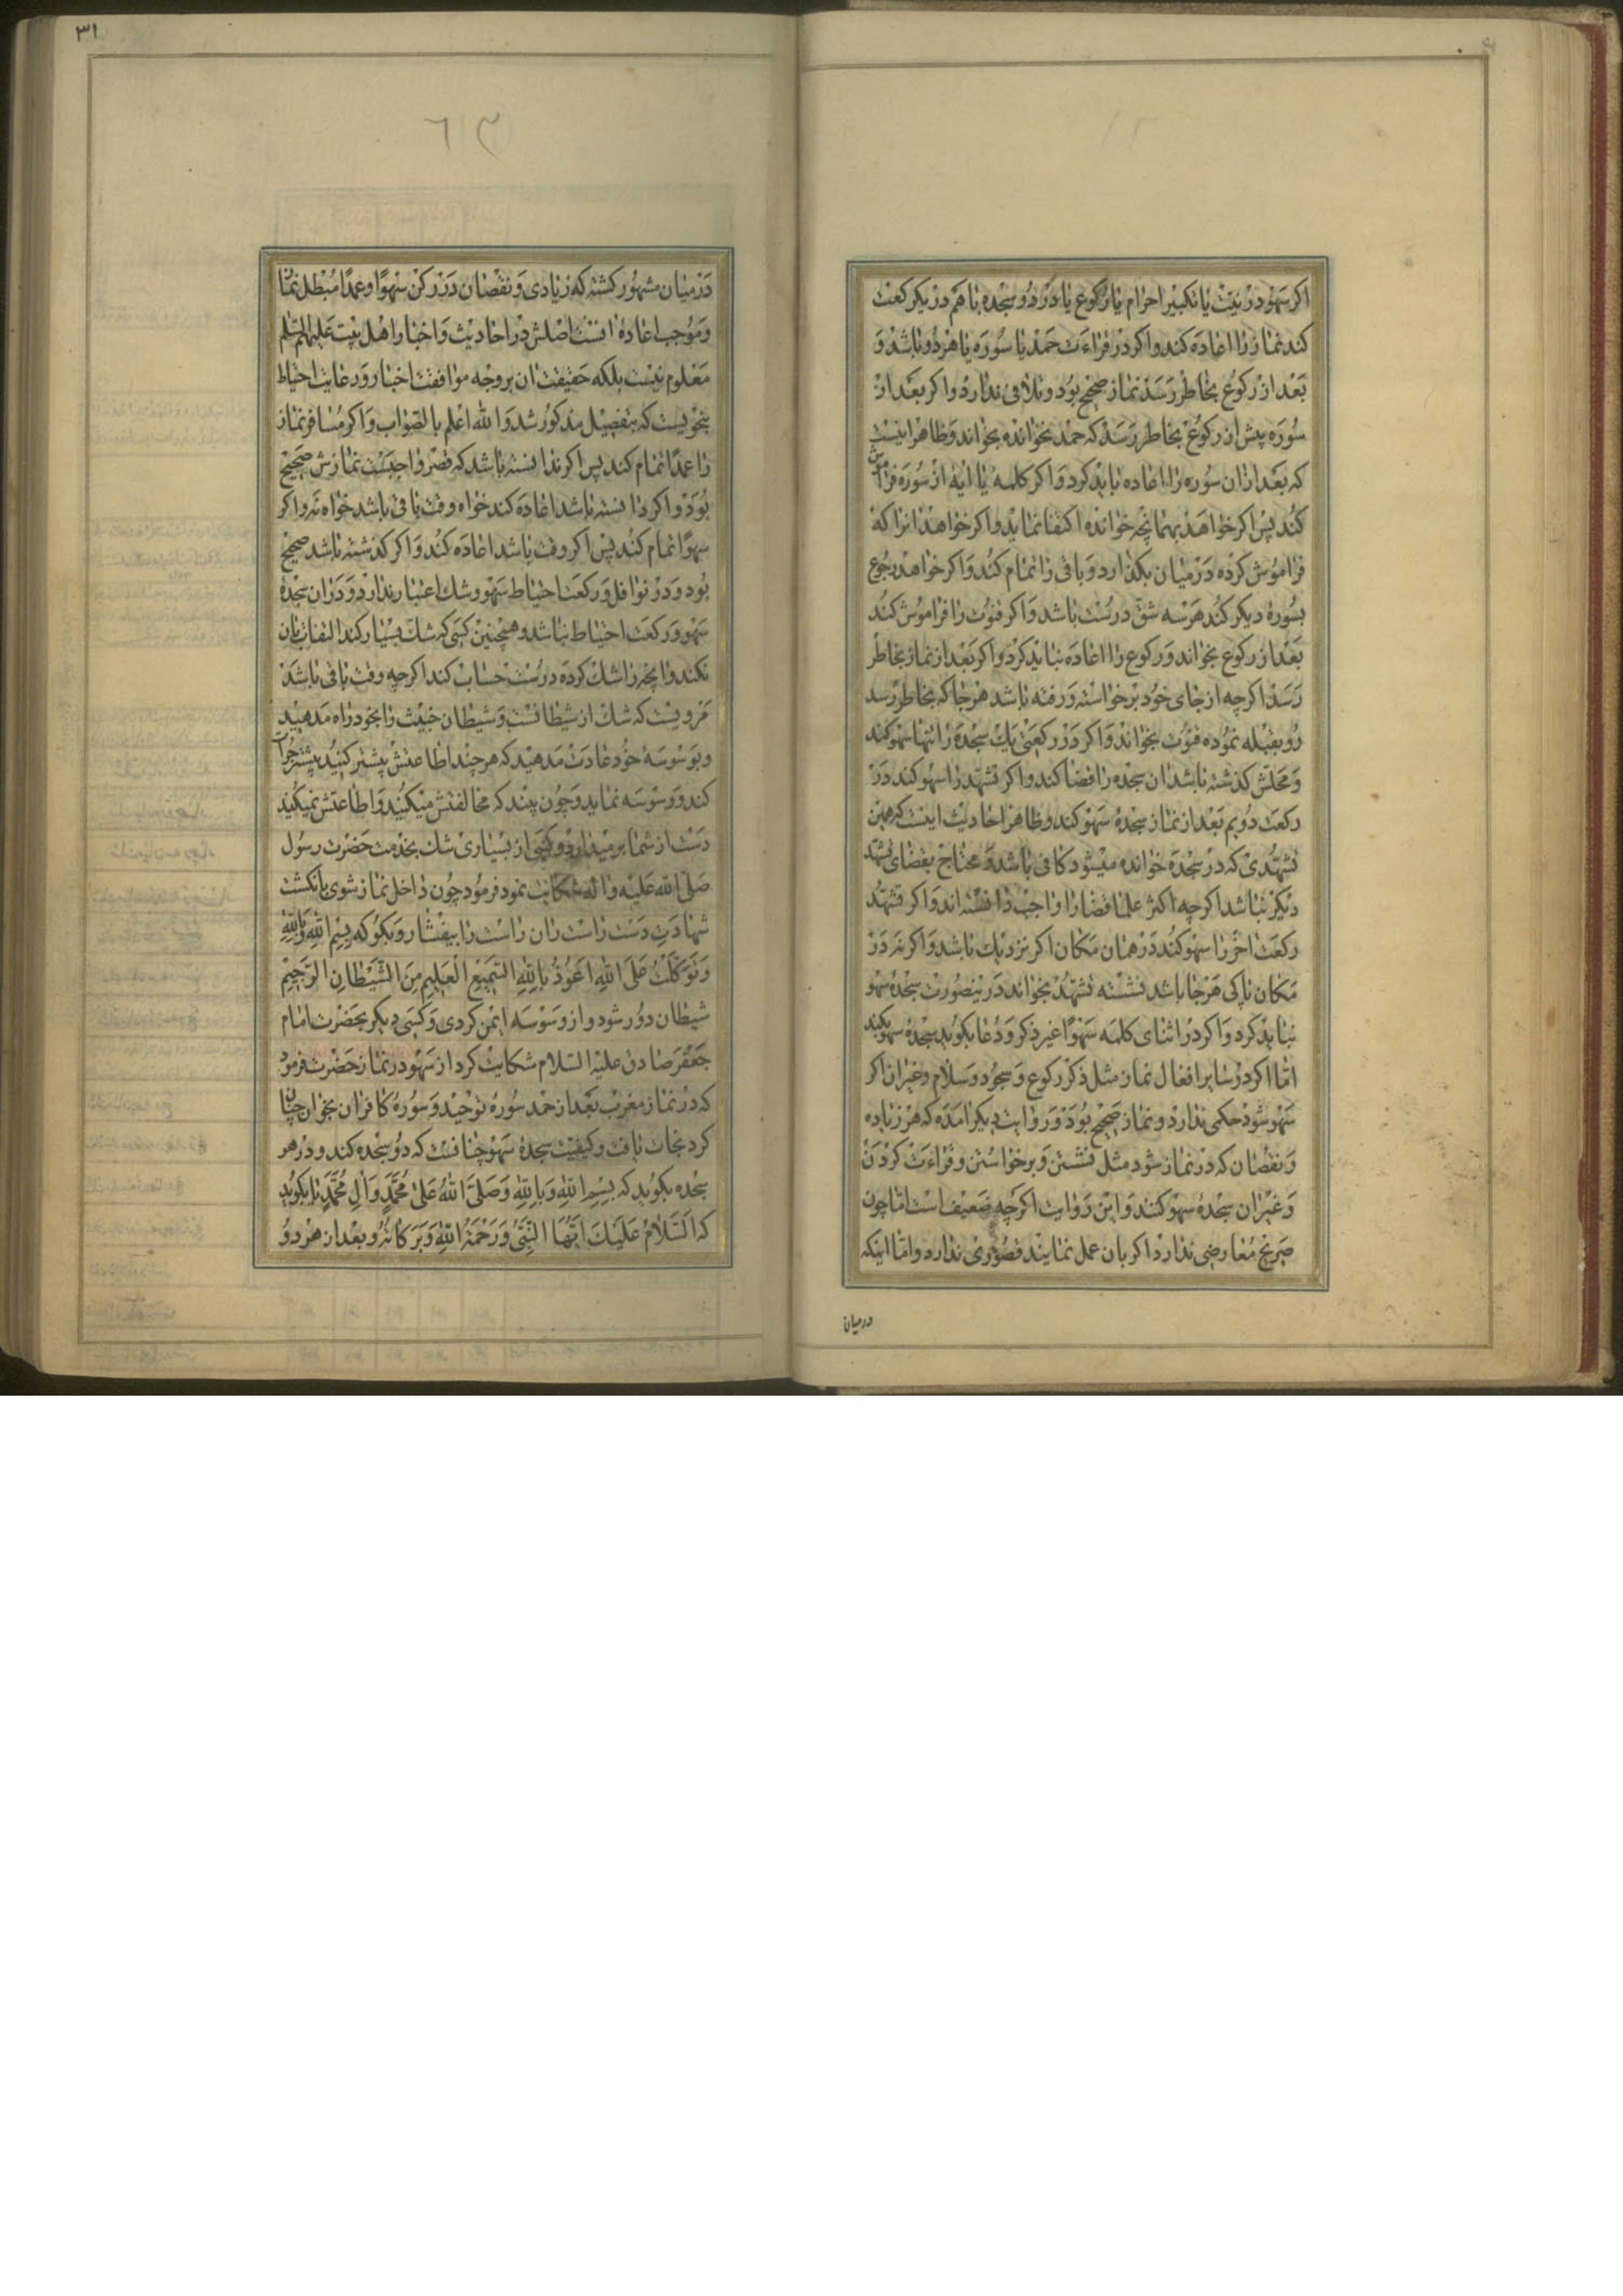 اکر سهو در نیت یا تکبیر احرام یا رکوع یا در دو سجده با هم در یکرکعت
کند نماز را اعاده کند و اکر در قراءت حمد یا سوره یا هر دو باشد و
بعد از رکوع بخاطر رسد نماز صحیح بود و تلافی ندارد و اکر بعد از
سوره پیش از رکوع بخاطر رسد که حمد نخوانده بخواند و ظاهر اینست
که بعد ازان سوره را اعاده باید کرد و اکر کلمه یا ایه از سوره فراموش
کند پس اکر خواهد بهمانچه خوانده اکتفا نماید و اکر خواهد انرا که
فراموش کرده در میان بکذارد و باقی را تمام کند و اکر خواهد رجوع
بسورهٔ دیکر کند هر سه شق درست باشد و اکر قنوت را فراموش کند
بعد از رکوع بخواند و رکوع را اعاده نباید کرد و اکر بعد از نماز بخاطر
رسد اکرچه از جای خود برخواسته و رفته باشد هر جا که بخاطر رسد
رو بقبله نموده قنوت بخواند و اکر در رکعتی یک سجده را تنها سهو کند
و محلش کذشته باشد ان سجده را قضا کند و اکر تشهد را سهو کند در
رکعت دویم بعد از نماز سجدهٔ سهو کند و ظاهر احادیث اینست که همین
تشهدی که در سجده خوانده میشود کافی باشد و محتاج بقضای تشهد
دیکر نباشد اکرچه اکثر علما قضا را واجب دانسته اند و اکر تشهد
رکعت اخر را سهو کند در همان مکان اکر نزدیک باشد و اکر نه در
مکان پاکی هر جا باشد نشسته تشهد بخواند در ینصورت سجدهٔ سهو
نباید کرد و اکر در اثنای کلمه سهوًا غیر ذکر و دعا بکوید سجدهٔ سهو بکند
اما اکر در سایر افعال نماز مثل ذکر رکوع و سجود و سلام و غیران اکر
سهو شود حکمی ندارد و نماز صحیح بود و در روایت دیکر امده که هر زیاده
و نقصان که در نماز شود مثل نشستن و برخواستن و قراءت کردن
و غیران سجدهٔ سهو کنند و این روایت اکرچه ضعیف است اما چون
صریح معارضی ندارد اکر بان عمل نمایند قصوری ندارد و اما اینکه
درمیان
٣١
در میان مشهور کشته که زیادی و نقصان در رکن سهوًا و عمدًا مبطل نماز
و موجب اعادهٔ انست اصلش در احادیث و اخبار اهل بیت علیهم السلم
معلوم نیست بلکه حقیقت ان بر وجه موافقت اخبار و رعایت احتیاط
بنحویست که بتفصیل مذکور شد و الله اعلم بالصواب و اکر مسافر نماز
را عمدًا تمام کند پس اکر ندانسته باشد که قصر واجبست نمازش صحیح
بود و اکر دانسته باشد اعاده کند خواه وقت باقی باشد خواه نه و اکر
سهوًا تمام کند پس اکر وقت باشد اعاده کند و اکر کذشته باشد صحیح
بود و در نوافل و رکعت احتیاط سهو و شک اعتبار ندارد و در ان سجدهٔ
سهو و رکعت احتیاط نباشد و همچنین کسی که شک بسیار کند التفات بان
نکند و انچه را شک کرده درست حساب کند اکرچه وقت باقی باشد
مرویست که شک از شیطانست و شیطان خبیث را بخود راه مدهید
و بوسوسه خود عادت مدهید که هر چند اطاعتش بیشتر کنید بیشتر جرات
کند و وسوسه نماید و چون بیند که مخالفتش میکنید و اطاعتش نمیکنید
دست از شما برمیدارد و کسی از بسیاری شک بخدمت حضرت رسول
صلی الله علیه و اله شکایت نمود فرمود چون داخل نماز شوی بانکشت
شهادت دست راست ران راست را بیفشار و بکو که بسم الله و بالله
و توکلت علی الله اعوذ بالله السمیع العلیم من الشیطان الرجیم
شیطان دور شود و از وسوسه ایمن کردی و کسی دیکر بحضرت امام
جعفر صادق علیه السلام شکایت کرد از سهو در نماز حضرت فرمود
که در نماز مغرب بعد از حمد سورهٔ توحید و سورهٔ کافران بخوان چنان
کرد نجات یافت و کیفیت سجدهٔ سهو چنانست که دو سجده کند و در هر
سجده بکوید که بسم الله و بالله و صلی الله علی محمد و ال محمد یا بکوید
که السلام علیک ایها النبی و رحمة الله و برکاته و بعد از هر دو